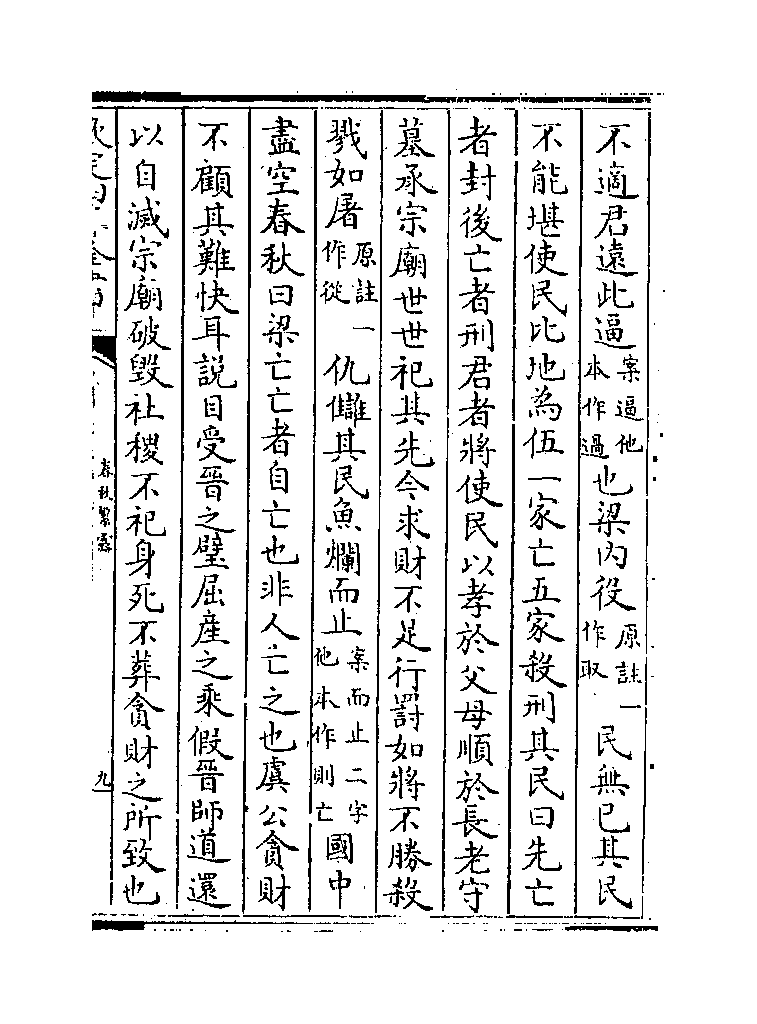 不適君遠此逼案逼他本作過也梁內役原註一作取民無已其民
不能堪使民比地為伍一家亡五家殺刑其民曰先亡
者封後亡者刑君者將使民以孝於父母順於長老守
墓承宗廟世世祀其先今求財不足行罰如將不勝殺
戮如屠原註一作從仇讎其民魚爛而止案而止二字他本作則亡國中
盡空春秋曰梁亡亡者自亡也非人亡之也虞公貪財
不顧其難快耳說目受晉之璧屈産之乘假晉師道還
以自滅宗廟破毀社稷不祀身死不葬貪財之所致也
春秋繁露
九